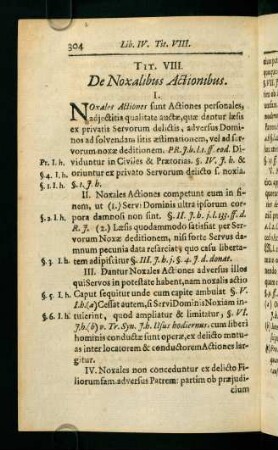 304 Lib. IV. Tit. VIII.
TIT. VIII.
De Noxalibus Actionibus.
I.
NOxales Actiones sunt Actiones personales,
adjectitia qualitate auctæ, quæ dantur læsis
ex privatis Servorum delictis, adversus Domi-
nos ad solvendam litis æstimationem, vel ad ser-
vorum noxæ deditionem. PR. J. h. l. 1. ff. eod. Di-
Pr. I. h. viduntur in Civiles & Prætorias. §. IV. J. h. &
§. 4. I. h. oriuntur ex privato Servorum delicto s. noxia.
§. 2. I. h. §. 1. J. h.
II. Noxales Actiones competunt eum in fi-
nem, ut (1.) Servi Dominis ultra ipsorum cor-
§. 2 I. h. pora damnosi non sint. §. II. J. h. j. l. 133. ff. d.
R. J. (2.) Læsis quodammodo satisfiat per Ser-
vorum Noxæ deditionem, nisi forte Servus dam-
num pecunia data resarciat, quo casu liberta-
§. 3. I. h. tem adipiscitur §. III. J. h. j. §. 4. J. d. donat.
III. Dantur Noxales Actiones adversus illos
qui Servos in potestate habent, nam noxalis actio
§. 5 I. h. Caput sequitur unde cum capite ambulat §. V.
I. h. (a) Cessat autem, si Servi Dominis Noxiam in-
§. 6. I. h. tulerint, quod ampliatur & limitatur, §. VI.
J. h. (b) v. Tr. Syn. J. h. Usus hodiernus. cum liberi
homines conducte sunt operæ, ex delicto mutuo
as inter locatorem & conductorem Actiones lar-
gitur.
IV. Noxales non conceduntur ex delicto Fi-
liorum fam. adversus Patrem: partim ob præjudi-
cium